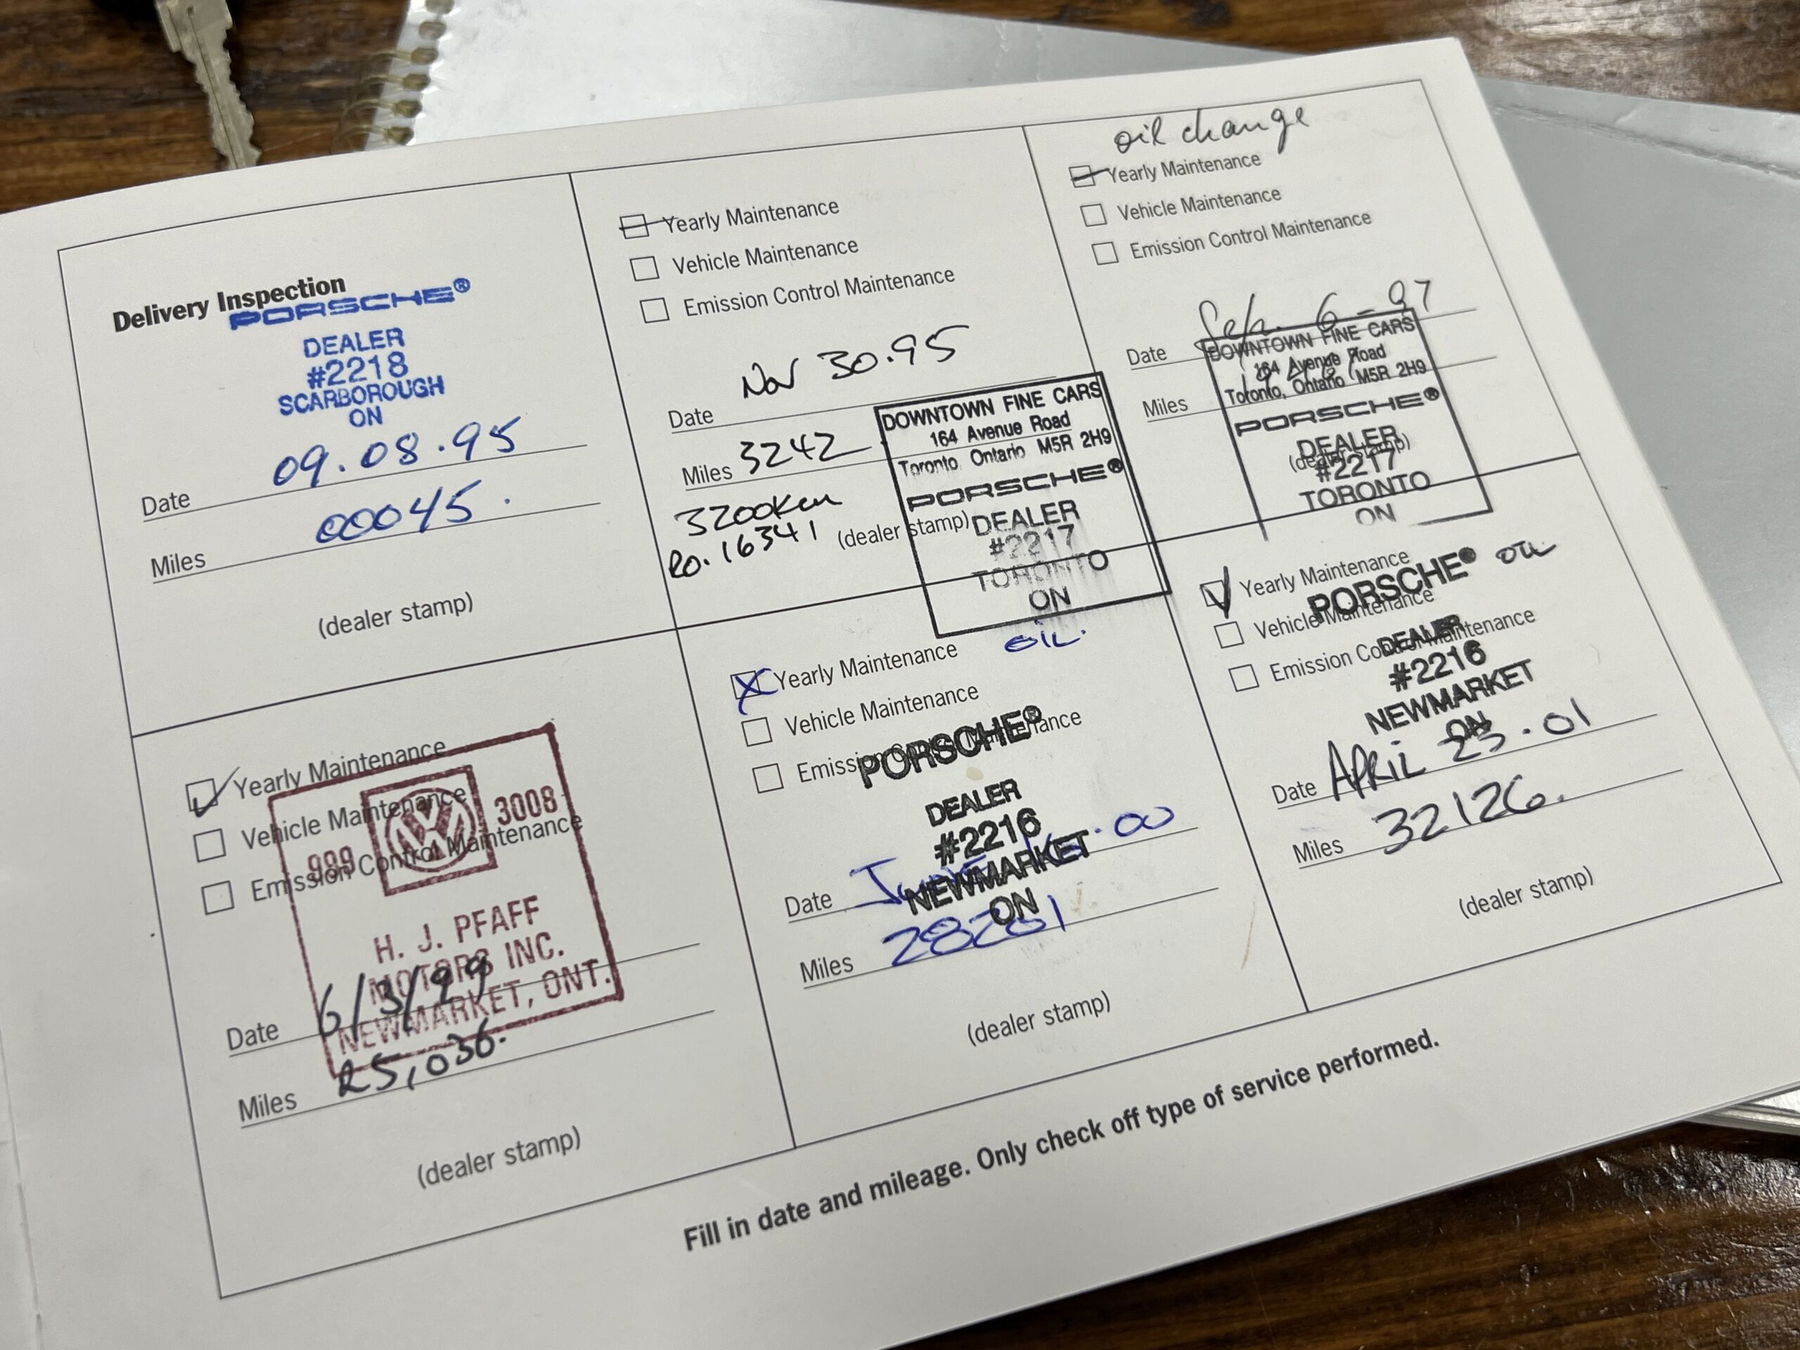 Delivery Inspection
PORSCHE®
DEALER
#2218
SCARBOROUGH
ON
Date 09.08.95
Miles 00045.
(dealer stamp)
Yearly Maintenance
Vehicle Maintenance
Emission Control Maintenance
Date Nov 30.95
Miles 3242
3200km
RO. 16341
(dealer stamp)
DOWNTOWN FINE CARS
164 Avenue Road
Toronto, Ontario M5R 2H9
PORSCHE®
DEALER
#2217
TORONTO
ON
oil change
Yearly Maintenance
Vehicle Maintenance
Emission Control Maintenance
Date 6-97
Miles
DOWNTOWN FINE CARS
164 Avenue Road
Toronto, Ontario M5R 2H9
PORSCHE®
DEALER
(dealer stamp)
#2217
TORONTO
ON
Yearly Maintenance
Vehicle Maintenance
Emission Control Maintenance
3008
989
H. J. PFAFF
MOTORS INC.
NEWMARKET, ONT.
Date 6/3/99
Miles 25,036.
(dealer stamp)
OIL.
Yearly Maintenance
Vehicle Maintenance
Emission Control Maintenance
PORSCHE®
DEALER
#2216
NEWMARKET
ON
Date 00
Miles 28281
(dealer stamp)
Yearly Maintenance
Vehicle Maintenance
Emission Control Maintenance
PORSCHE®
DEALER
#2216
NEWMARKET
ON
Date APRIL 23.01
Miles 32126.
(dealer stamp)
Fill in date and mileage. Only check off type of service performed.